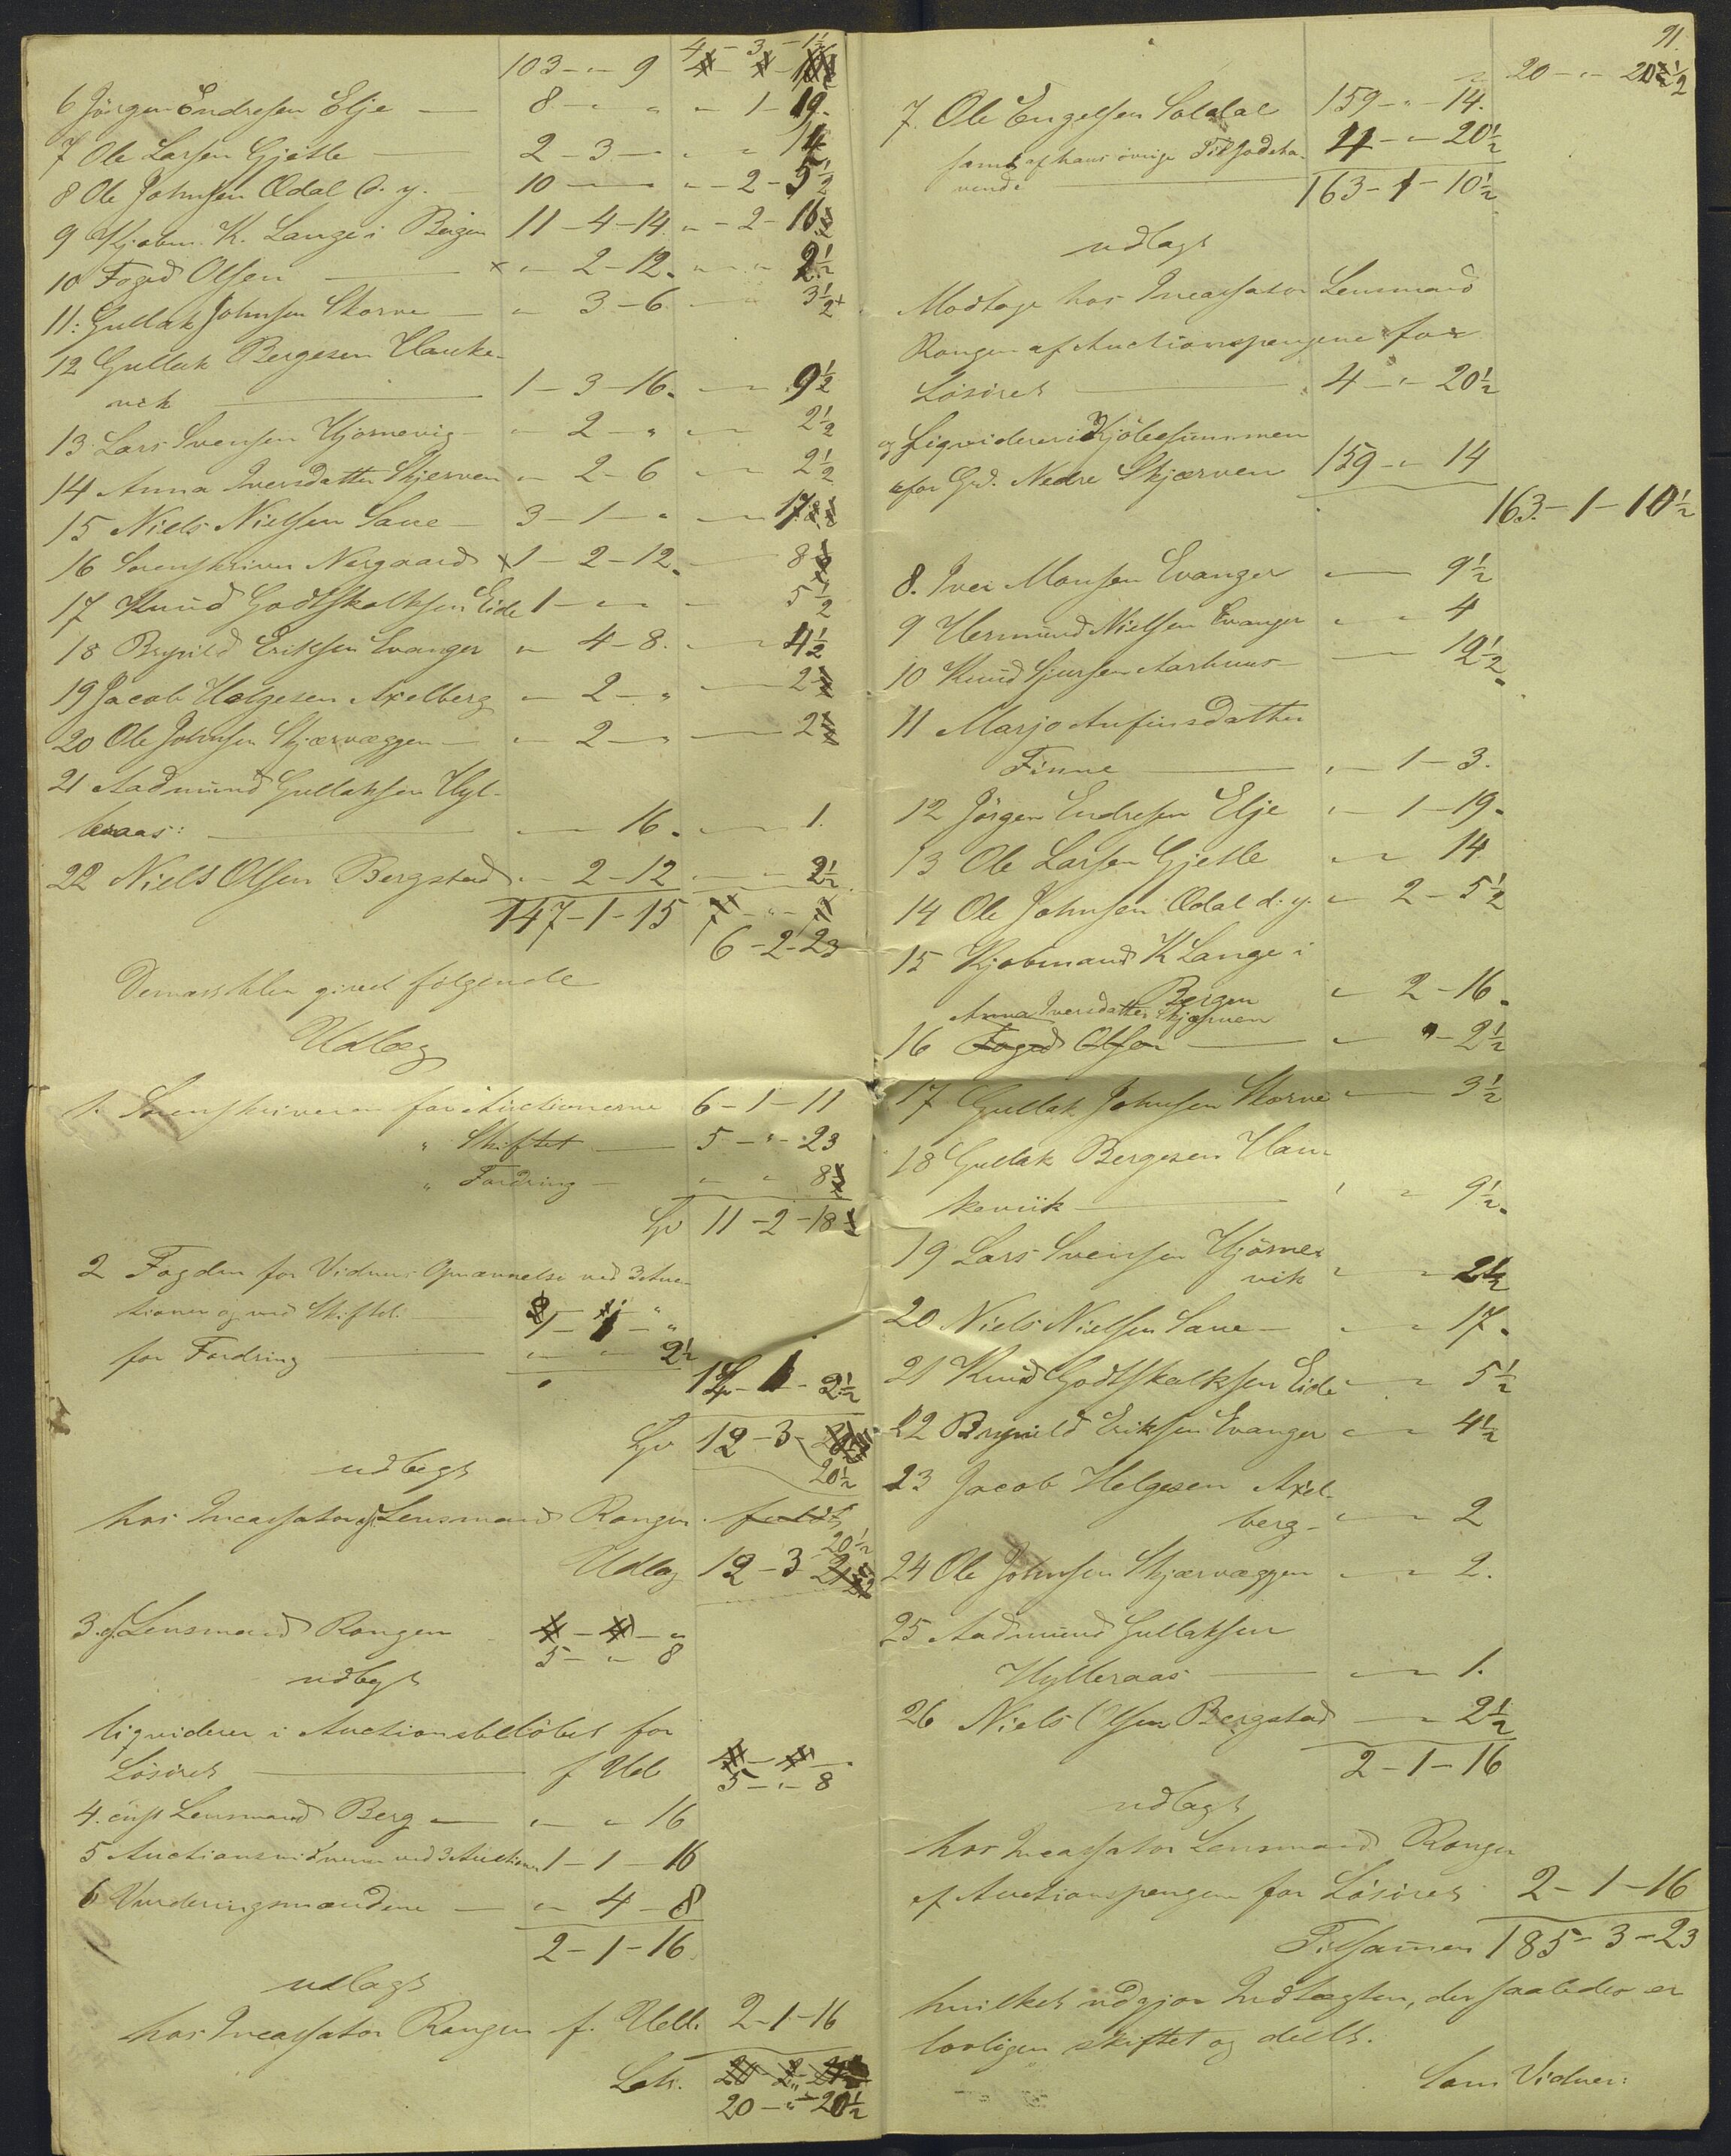 103 - " - 9 4 - 3 - 1½
6 Jörgen Endresen Elje — 8 - " - " " - 1 - 19.
7 Ole Larsen Gjetle — 2 - 3 - " " - " 14
8 Ole Johnsen Ødal d. y. 10 — " - 2 - 5½
9 Kjøbm. K. Lange i Bergen 11 - 4 - 14. " - 2 - 16
10 Foged Olsen — x " - 2 - 12. " - " 2½
11: Gullak Johnsen Skorve — " 3 - 6. — " 3½
12 Gullak Bergesen Hauke-
vik — 1 - 3 - 16. — " 9½
13 Lars Svensen Hjørnevig — " 2 - " — " 2½
14 Anna Iversdatter Skjerven " - 2 - 6 — " 2½
15 Niels Nielsen Saue — 3 - 1 - " — " 17
16 Sorenskriver Nergaard x 1 - 2 - 12. — 8
17 Knud Godtskalksen Eide 1 - " - " — 5½
18 Brynild Eriksen Evanger " 4 - 8. — " 4½
19 Jacob Helgesen Axelberg " 2 - " — 2
20 Ole Johnsen Skjærvæggen — " 2 - " — 2
21 Aadmund Gullaksen Hyl-
leraas: — " — 16. — " 1.
22 Niels Olsen Bergstad " - 2 - 12 — " - 2½
147 - 1 - 15
6 - 2 - 23
Dernæst blev gjort følgende
Udlæg
1. Sorenskriveren for Auctionerne 6 - 1 - 11
" Skiftet — 5 - " - 23
" Fordring — " " 8
11 - 2 - 18
2 Fogden for Vidners Opnævnelse ved 3 Auc-
tioner og ved Skiftet. — 1 - 1 - "
for Fordring — " - " 2½
1 - 1 - 2½
12 - 3 -
20½
udlagt
hos Incassator Lensmand Rongen.
20½
Udlag 12 - 3
3. Lensmand Rongen
5 - " - 8
udlagt
liqviderer i Auctionsbeløbet for
Løsøret — f Udl
5 - " - 8
4. Lensmand Berg — " - " - 16
5 Auctionsvidnerne ved 3 Auctioner 1 - 1 - 16
6 Vurderingsmændene — " 4 - 8
2 - 1 - 16.
udlagt
hos Incassator Rongen f. Udl. 2 - 1 - 16
Lat.
20 - " - 20½
91.
20 - " - 20½
7. Ole Engelsen Saldal 159 - " - 14.
samt af hans øvrige Tilgodeha-
vende — 4 - " - 20½
163 - 1 - 10½
udlagt
Modtage hos Incassator Lensmand
Rongen af Auctionspengene for
Løsøret — 4 - " - 20½
og Liqviderer i Kjøbesummen
for Grd. Nedre Skjerven 159 - " - 14
163 - 1 - 10½
8. Iver Monsen Evanger " — 9½
9 Hermund Nielsen Evanger " " 4
10 Knud Sjursen Aarhuus — " — 19½
11 Marjo Anfinsdatter
Finne — " - 1 - 3.
12 Jörgen Endresen Elje " - 1 - 19.
13 Ole Larsen Gjetle " " 14
14 Ole Johnsen Ødal d. y. " - 2 - 5½
15 Kjøbmand K Lange i
Bergen " 2 - 16.
Anna Iversdatter Skjerven
16 Foged Olsen — " " - 2½
17 Gullak Johnsen Skorve " — 3½
18 Gullak Bergesen Hau-
keviik — " " 9½.
19 Lars Svensen Hjørne-
vik " " 2½
20 Niels Nielsen Saue — " " 17.
21 Knud Godtskalksen Eide " " 5½
22 Brynild Eriksen Evanger " " 4½
23 Jacob Helgesen Axel-
berg — " " 2
24 Ole Johnsen Skjærvæggen " " 2.
25 Aadmund Gullaksen
Hylleraas — " " 1.
26 Niels Olsen Bergstad — " 2½
2 - 1 - 16
udlagt
hos Incassator Lensmand Rongen
af Auctionspengene for Løsøret 2 - 1 - 16
Tilsammen 185 - 3 - 23
hvilket udgjør Indtægten, der saaledes er
lovligen skiftet og deelt.
Som Vidner: